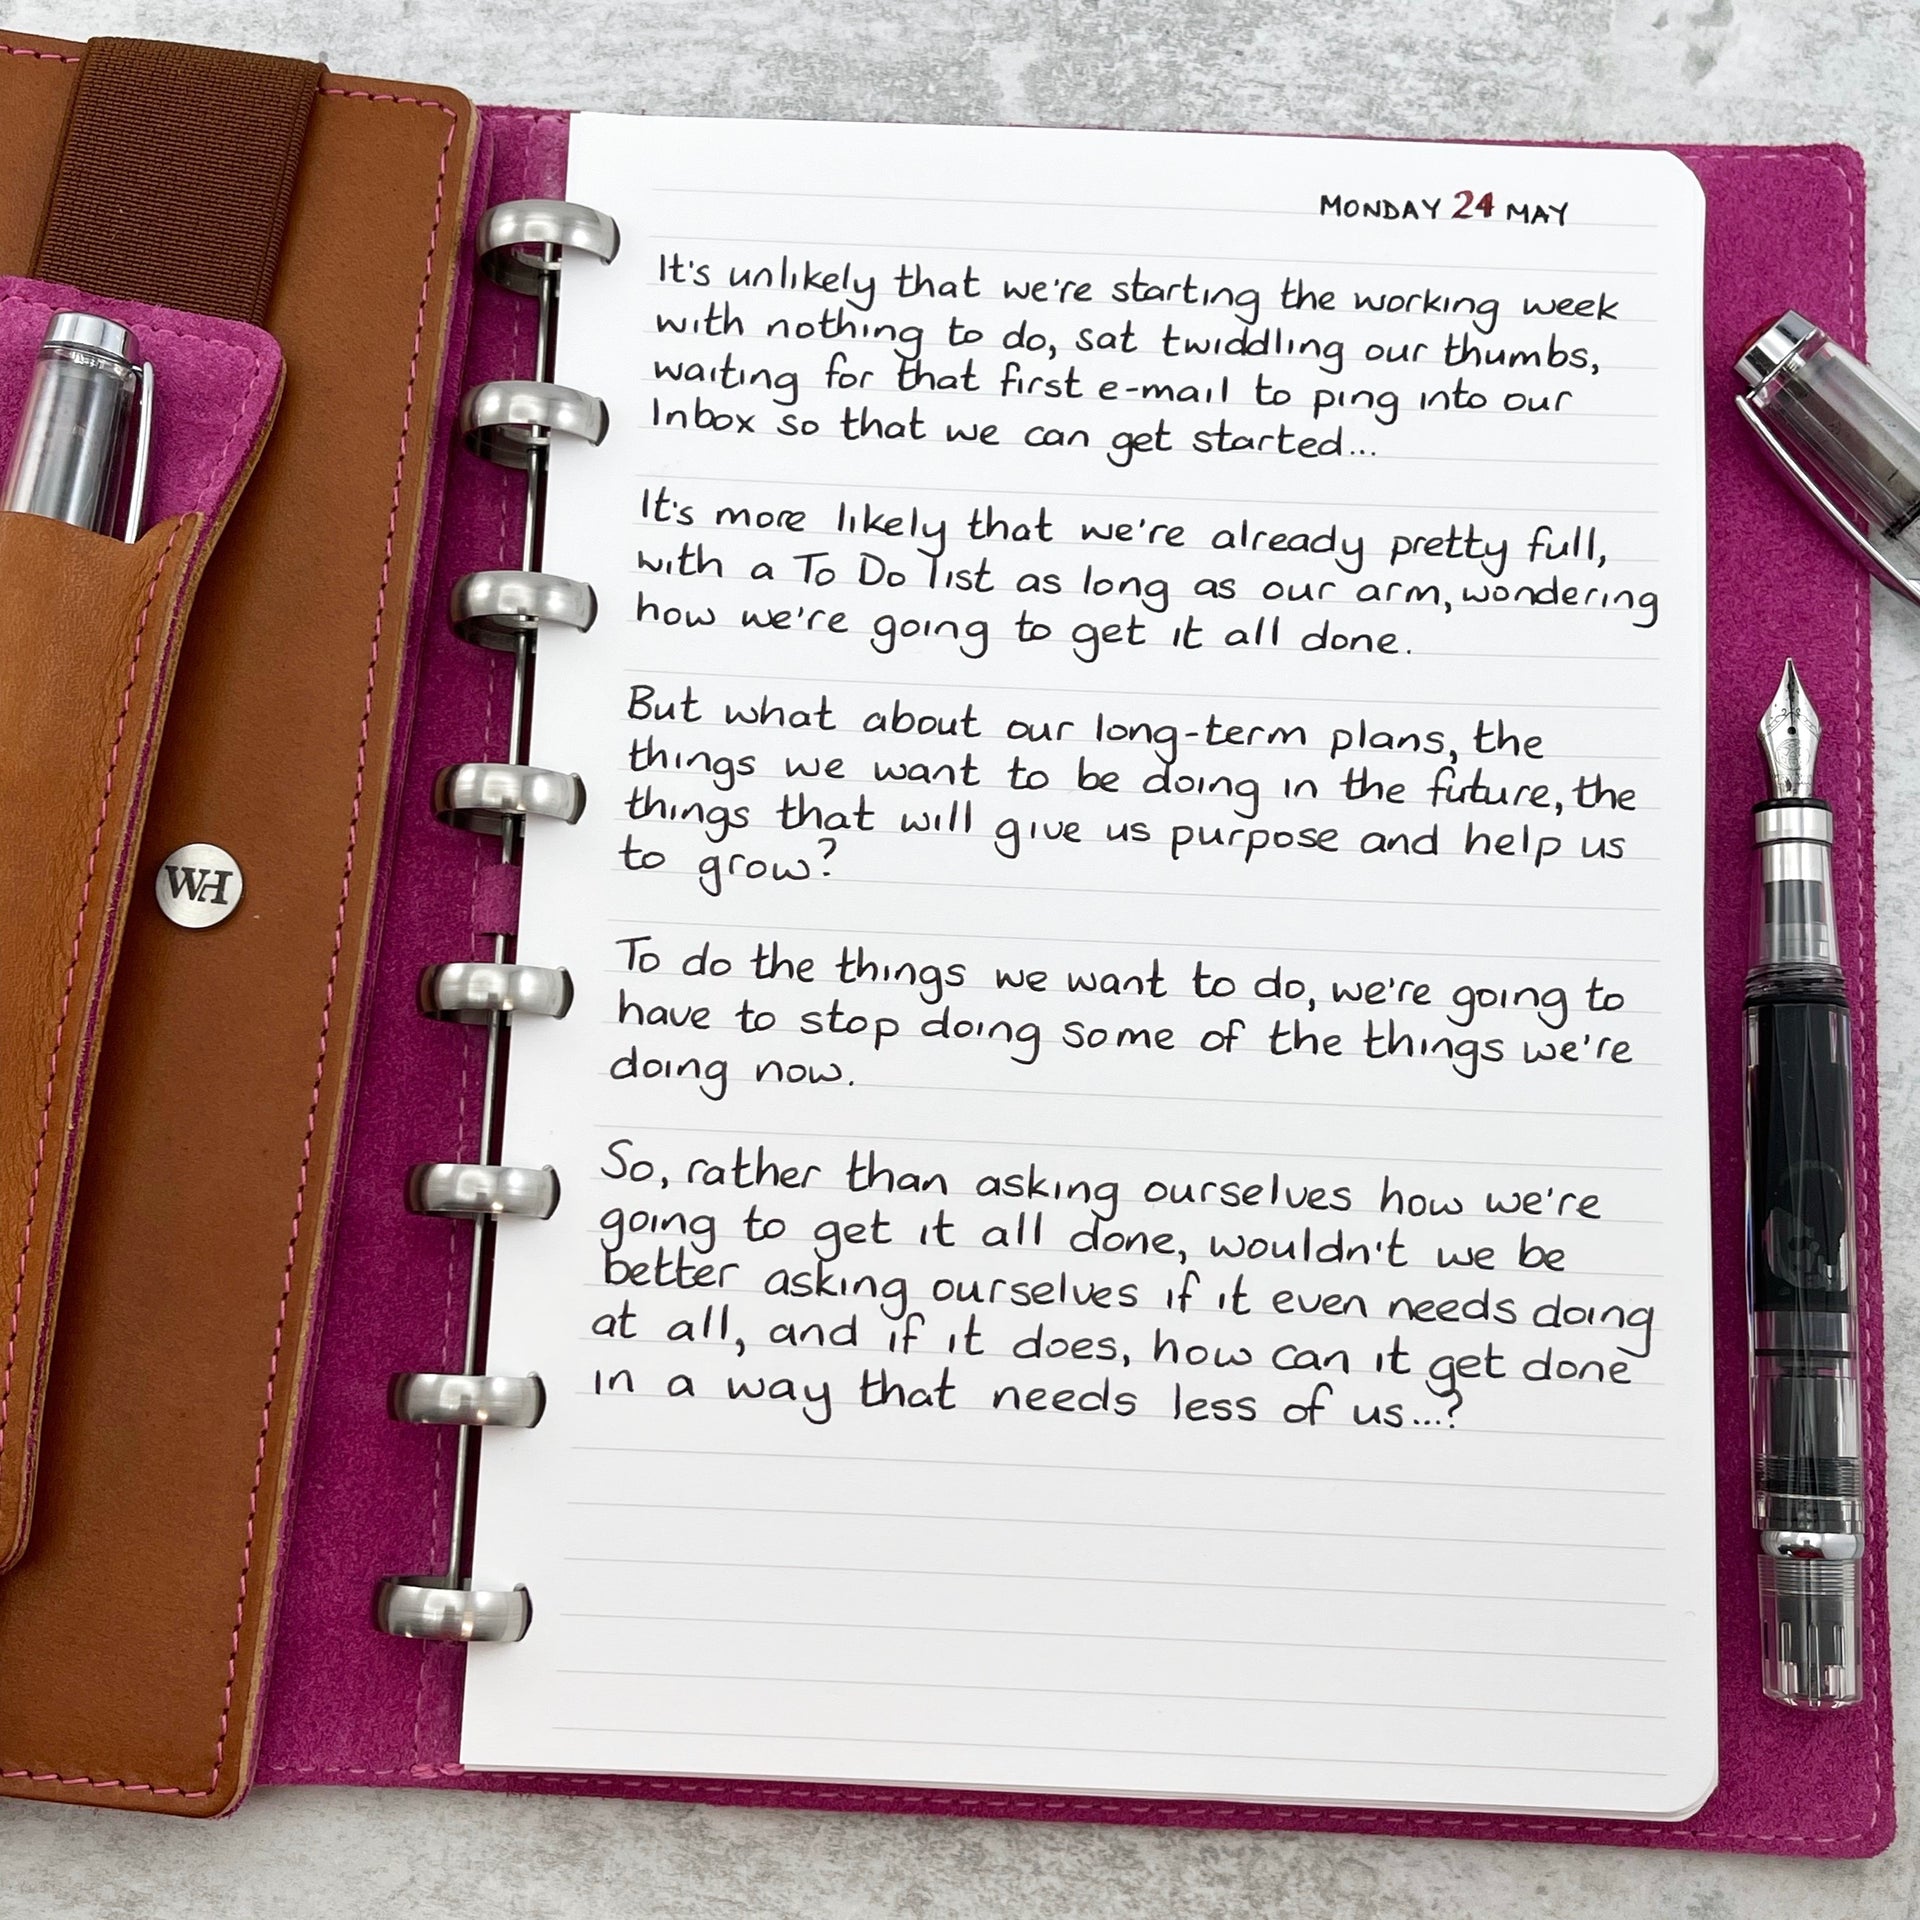 MONDAY 24 MAY
It's unlikely that we're starting the working week
with nothing to do, sat twiddling our thumbs,
waiting for that first e-mail to ping into our
Inbox so that we can get started...
It's more likely that we're already pretty full,
with a To Do list as long as our arm, wondering
how we're going to get it all done.
But what about our long-term plans, the
things we want to be doing in the future, the
things that will give us purpose and help us
to grow?
To do the things we want to do, we're going to
have to stop doing some of the things we're
doing now.
So, rather than asking ourselves how we're
going to get it all done, wouldn't we be
better asking ourselves if it even needs doing
at all, and if it does, how can it get done
in a way that needs less of us...?
WH